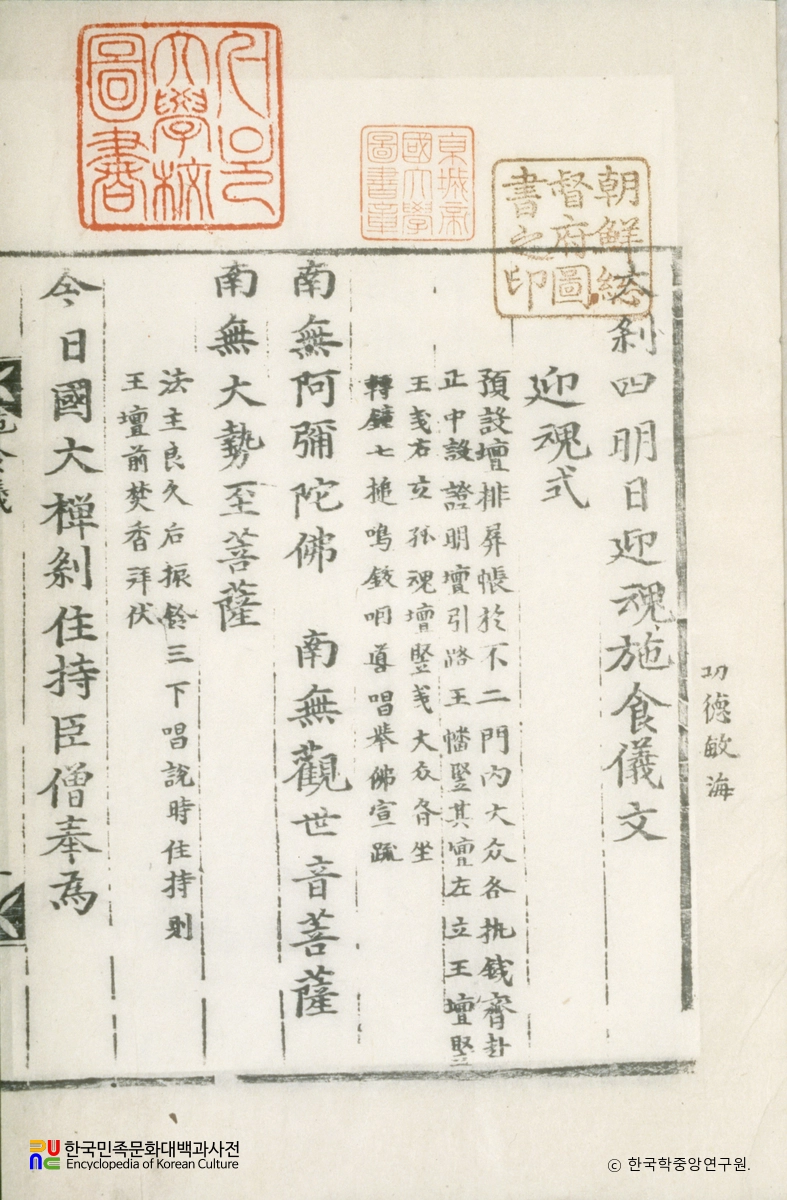 서울
大學校
圖書
京城帝
國大學
圖書章
朝鮮総
督府圖
書之印
功德敏海
太刹四明日迎魂施食儀文
迎魂式
預設壇排屏帳於不二門內大众各执钱齊赴
正中設證明壇引路王幡竪其壇左立王壇竪
王右立孤魂壇竪大众各坐
轉鍾七搥鳴鈸導唱擧佛宣疏
南無阿彌陀佛 南無觀世音菩薩
南無大勢至菩薩
法主良久后振鈴三下唱說時住持則
王壇前焚香拜伏
今日國大禪刹住持臣僧奉為
한국민족문화대백과사전
Encyclopedia of Korean Culture
© 한국학중앙연구원.